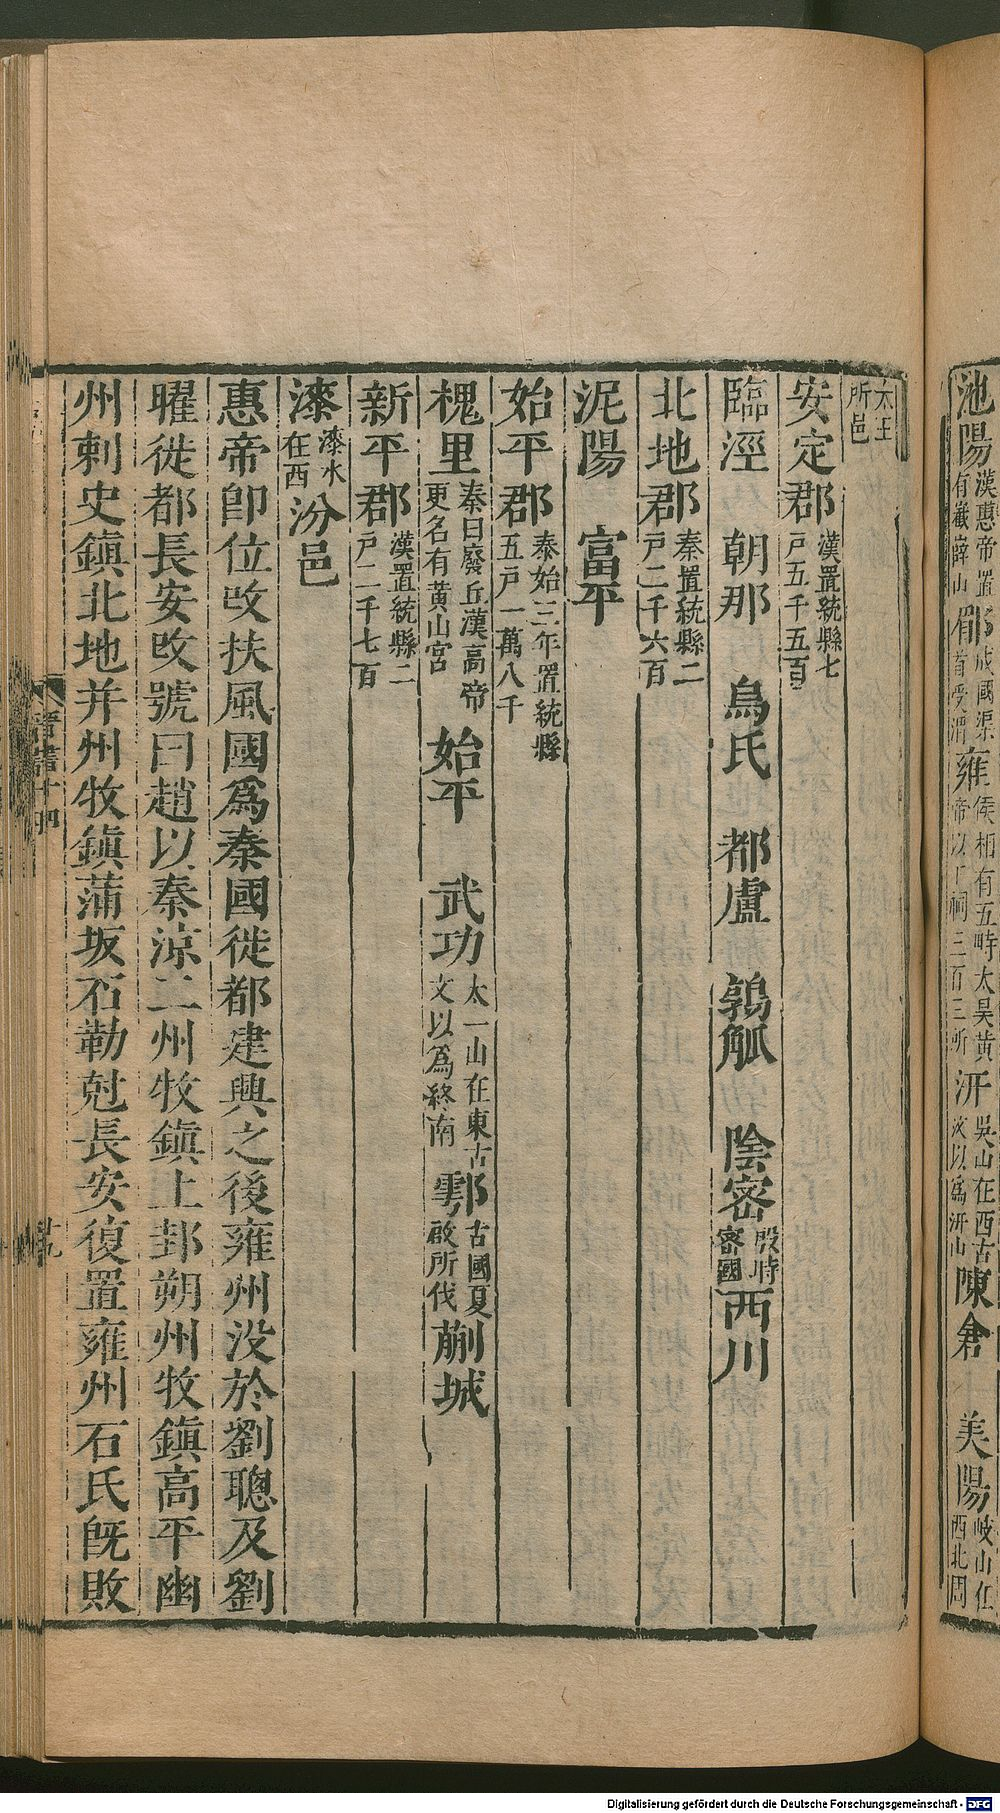 池陽漢惠帝置有巀嶭山郿成國渠首受渭雍侯相有五畤太昊黃帝以下祠三百三所汧吳山在西古文以爲汧山陳倉　美陽岐山在西北周
太王所邑
安定郡漢置統縣七戸五千五百
臨涇　朝那　烏氏　都盧　鶉觚　陰密殷時密國西川
北地郡秦置統縣二戸二千六百
泥陽　富平
始平郡泰始三年置統縣五戸一萬八千
槐里秦曰廢丘漢高帝更名有黃山宮始平　武功太一山在東古文以爲終南鄠古國夏啟所伐蒯城
新平郡漢置統縣二戸二千七百
漆漆水在西汾邑
惠帝卽位改扶風國爲秦國徙都建興之後雍州沒於劉聰及劉
曜徙都長安改號曰趙以秦涼二州牧鎮上邽朔州牧鎮高平幽
州刺史鎮北地并州牧鎮蒲坂石勒尅長安復置雍州石氏旣敗
晉書十四
十九
Digitalisierung gefördert durch die Deutsche Forschungsgemeinschaft - DFG